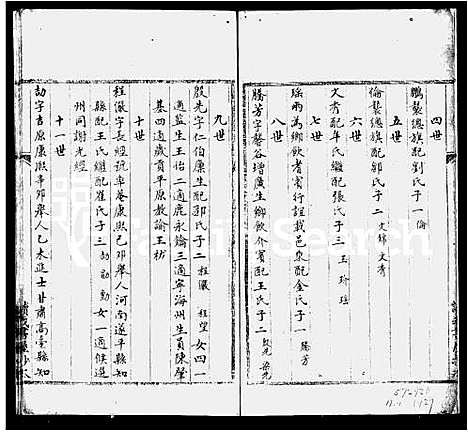 四世
鵬襲總旗配劉氏子一倫
五世
倫襲總旗配郭氏子二文錦 文秀
六世
文秀配年氏繼配張氏子三玉 珍 瑶
七世
瑶雨為鄉飲耆賓行誼載邑乘配金氏子一勝芳
八世
勝芳字馨谷增廣生鄉飲介賓配王氏子二殷先 榮先
九世
殷先字仁伯廩生配郭氏子二程儼 程望女四一
適監生王祜二適鹿永鑰三適寧海州生員陳肇
基四適歲貢平原教諭王枋
十世
程儼字長經號率菴康熙己卯舉人河南遂平縣知
縣配王氏繼配崔氏子三劼 勷 勳女一適候選
州同謝光經
十一世
劼字吉原康熙辛卯舉人乙未進士甘肅高臺縣知